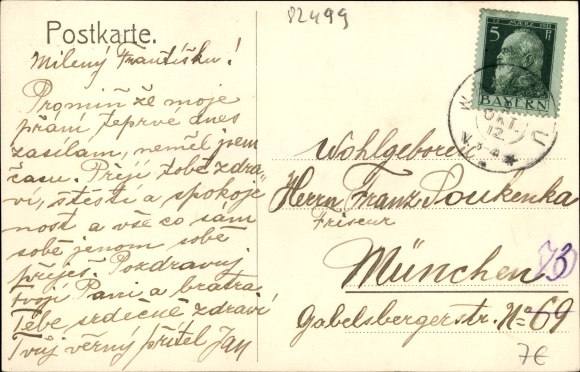 82499
Postkarte.
Milený Františku!
Promiň že moje
přání teprve dnes
zasílam, neměl jsem
času. Přeji tobě zdra-
ví, štestí a spokoje
nost a vše co sam
sobě jenom sobě
přeješ. Pozdravuj
Tvoji Pani a bratra
Tebe srdečně zdraví
Tvůj věrný přítel Jan
5 Pf
BAYERN
OKT.
12
Wohlgeboren
Herrn Franz Soukenka
Friseur
München
73
Gabelsbergerstr. N= 69
7€